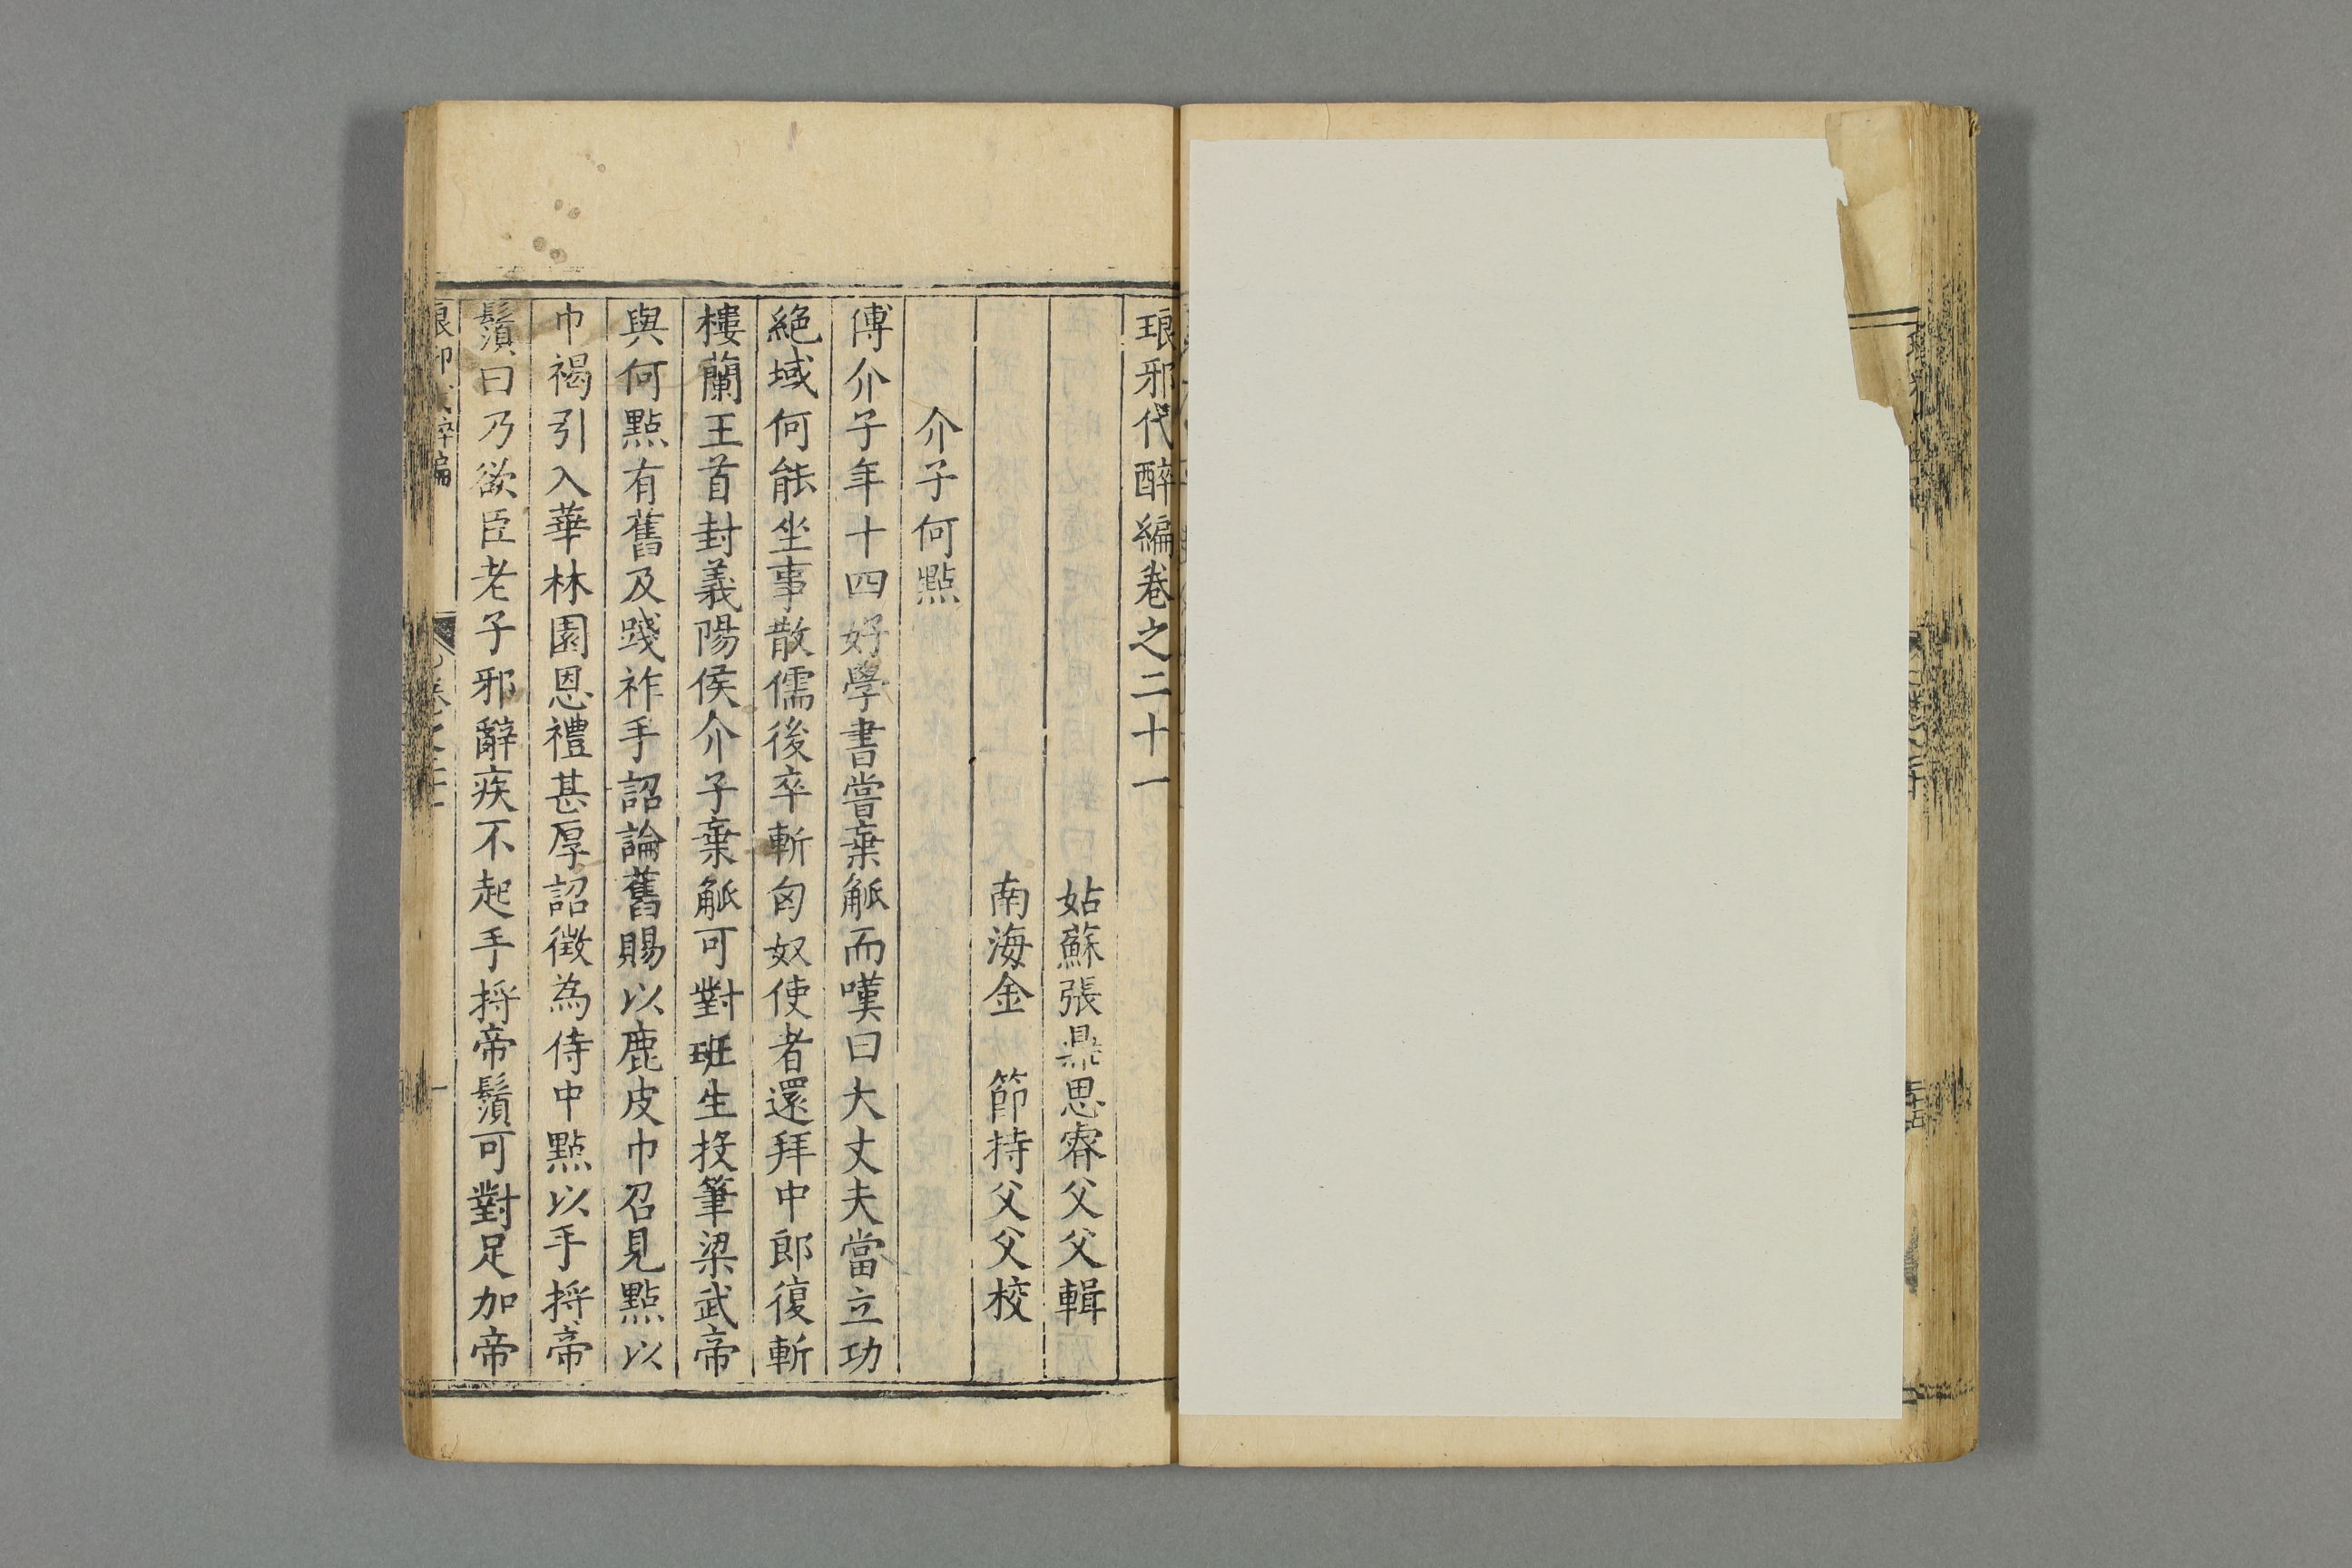 琅邪代醉編卷之二十一
姑蘇張鼎思睿父父輯
南海金節持父父校
介子何點
傅介子年十四好學書嘗棄觚而嘆曰大丈夫當立功
絕域何能坐事散儒後卒斬匈奴使者還拜中郎復斬
樓蘭王首封義陽侯介子棄觚可對班生投筆梁武帝
與何點有舊及踐祚手詔論舊賜以鹿皮巾召見點以
巾褐引入華林園恩禮甚厚詔徵為侍中點以手捋帝
鬚曰乃欲臣老子邪辭疾不起手捋帝鬚可對足加帝